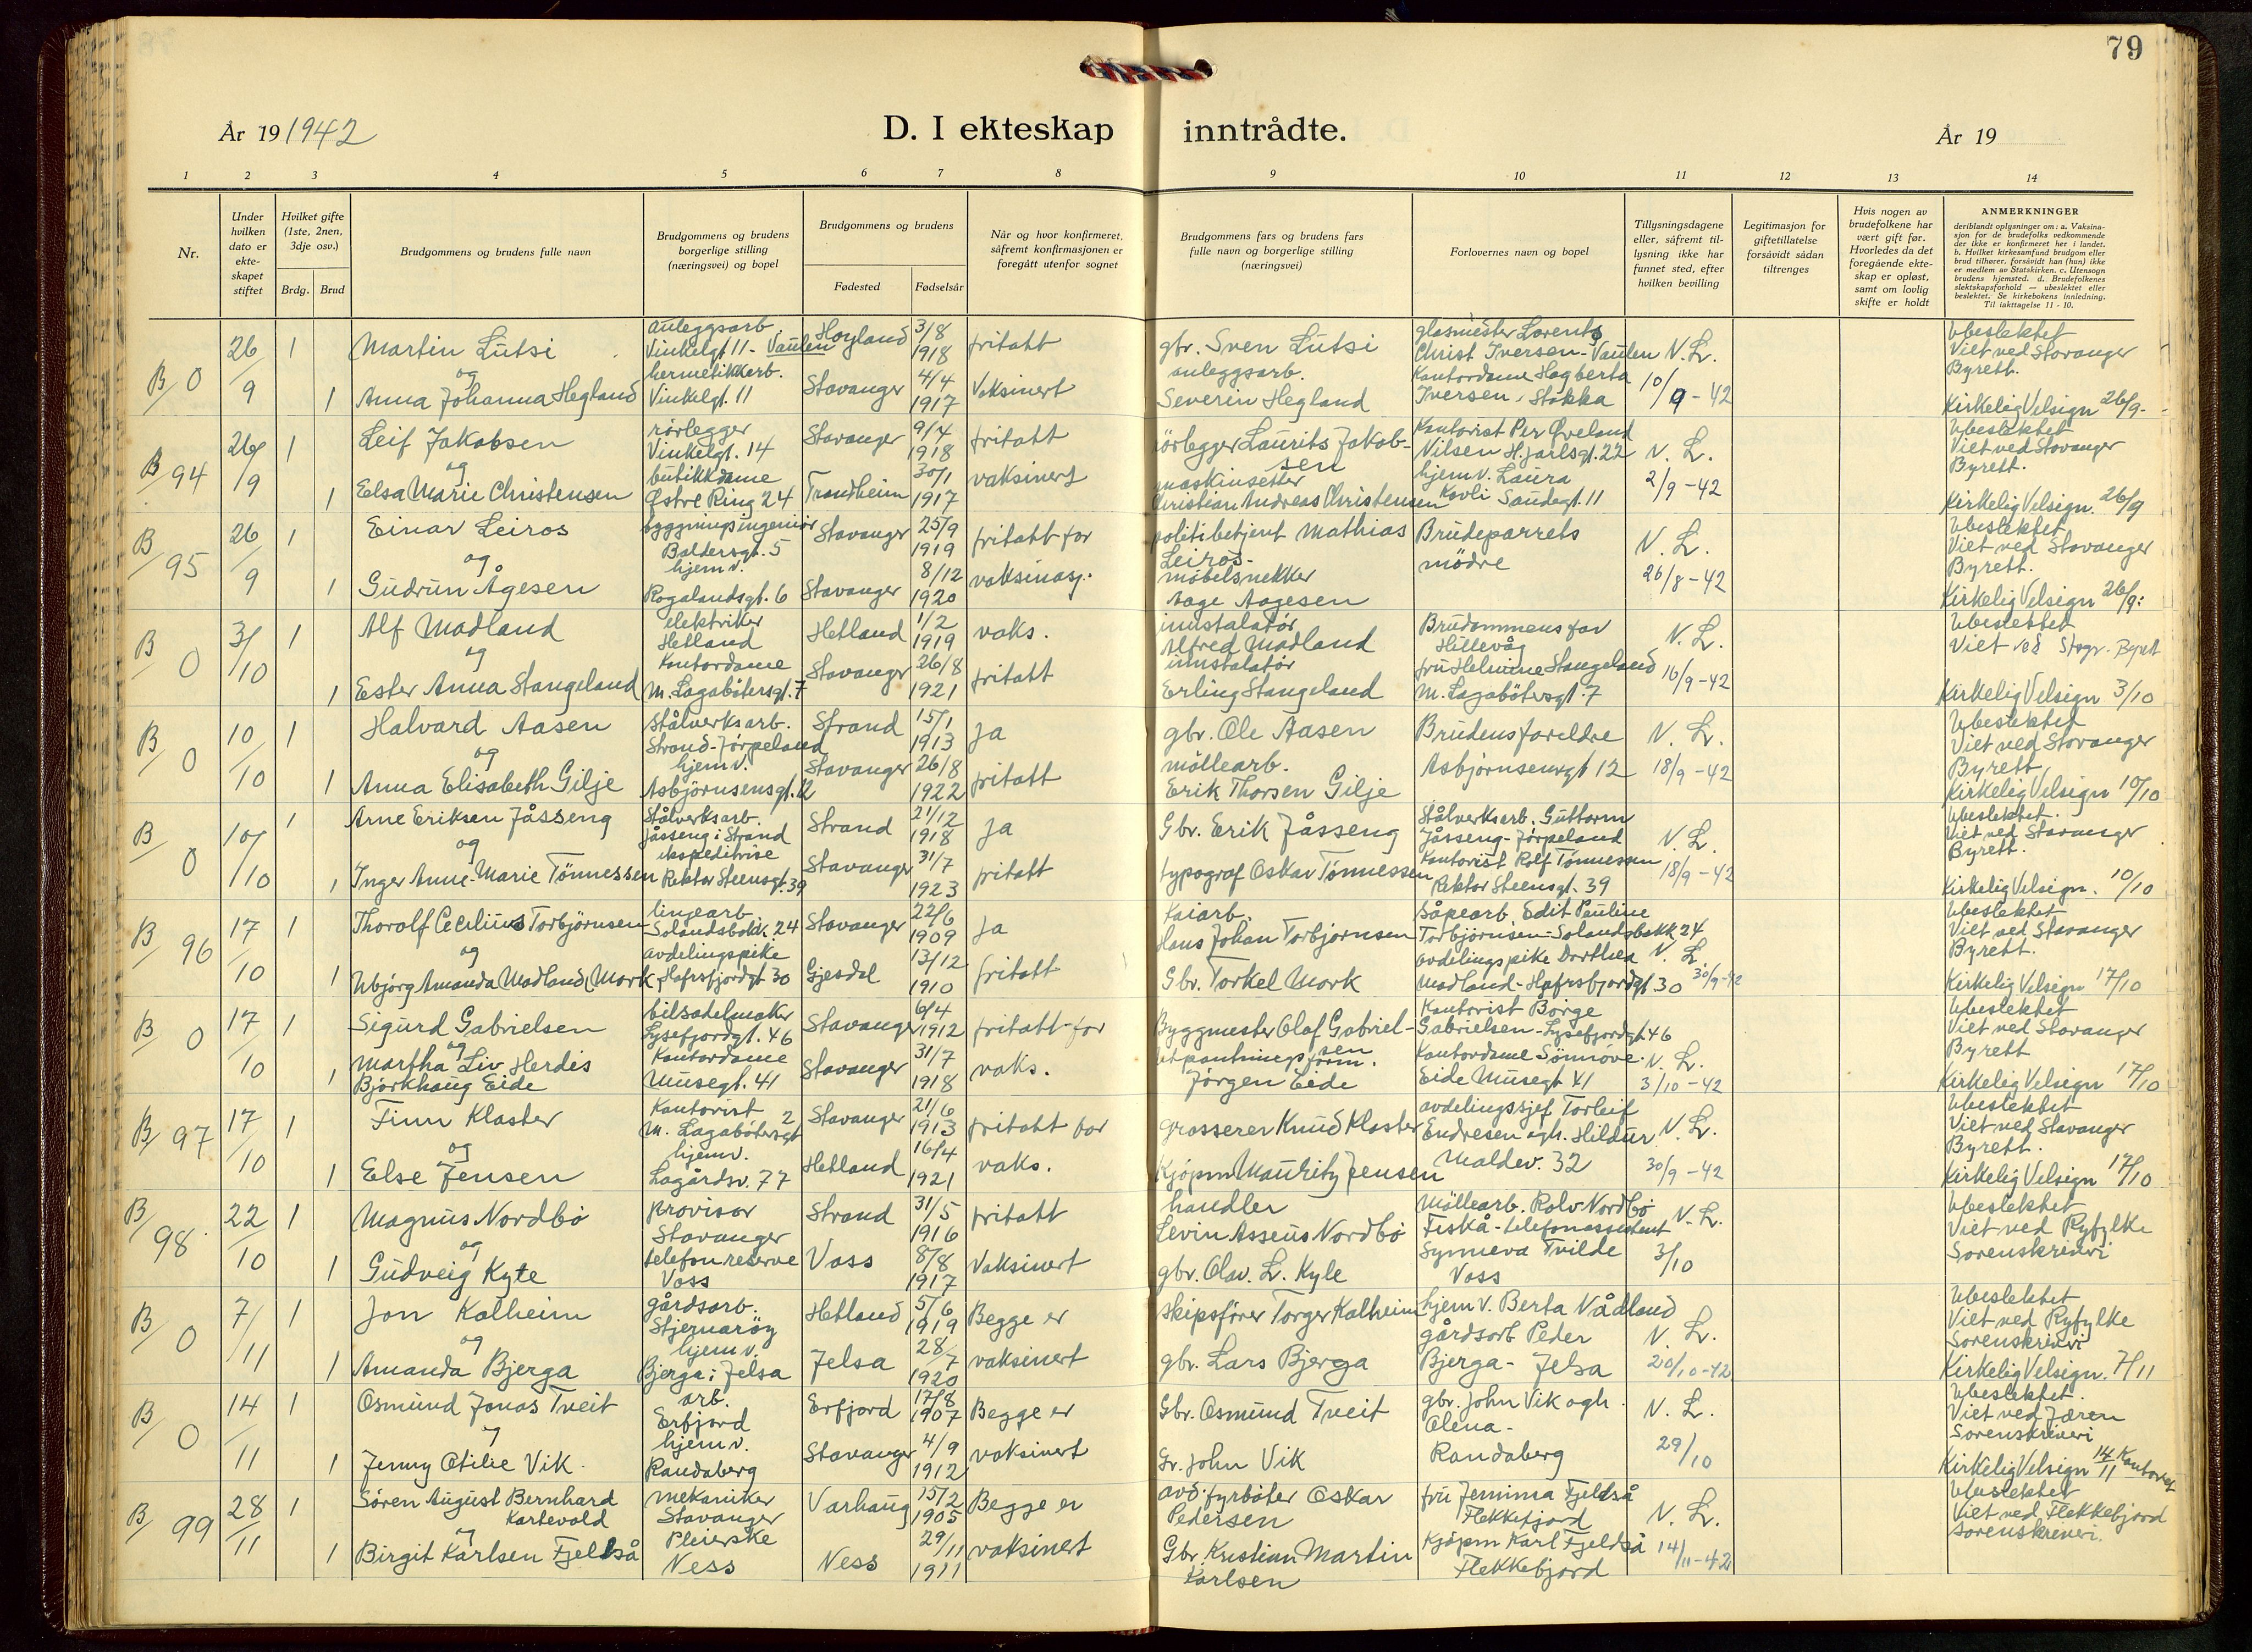 79
År 19 1942
D. I ekteskap inntrådte.
År 19
1 2 3 4 5 6 7 8 9 10 11 12 13 14
Nr.
Under hvilken dato er ekteskapet stiftet
Hvilket gifte (1ste, 2nen, 3dje osv.)
Brdg. Brud
Brudgommens og brudens fulle navn
Brudgommens og brudens borgerlige stilling (næringsvei) og bopel
Brudgommens og brudens
Fødested Fødselsår
Når og hvor konfirmeret, såfremt konfirmasjonen er foregått utenfor sognet
Brudgommens fars og brudens fars fulle navn og borgerlige stilling (næringsvei)
Forlovernes navn og bopel
Tillysningsdagene eller, såfremt tillysning ikke har funnet sted, efter hvilken bevilling
Legitimasjon for giftetillatelse forsåvidt sådan tiltrenges
Hvis nogen av brudefolkene har vært gift før. Hvorledes da det foregående ekteskap er opløst, samt om lovlig skifte er holdt
ANMERKNINGER
deriblandt oplysninger om: a. Vaksinasjon for de brudefolks vedkommende der ikke er konfirmeret her i landet. b. Hvilket kirkesamfund brudgom eller brud tilhører, forsåvidt han (hun) ikke er medlem av Statskirken. c. Utensogn brudens hjemsted. d. Brudefolkenes slektskapsforhold — ubeslektet eller beslektet. Se kirkebokens innledning. Til iakttagelse 11 - 10.
B/0 26/9 1 Martin Lutsi anleggsarb. Vinkelgt 11 - Vaulen Høyland 3/8 1918 fritatt gbr. Sven Lutsi glasmester Lorents Christ Iversen - Vaulen N. L. Ubeslektet Viet ved Stavanger Byrett.
og
1 Anna Johanna Hegland hermetikkarb. Vinkelgt. 11 Stavanger 4/4 1917 Vaksinert anleggsarb. Severin Hegland Kontordame Hagberta Iversen, Stokka 10/9-42 Kirkelig Velsign 26/9-
B/94 26/9 1 Leif Jakobsen rörlegger Vinkelgt. 14 Stavanger 9/4 1918 fritatt rörlegger Laurits Jakobsen Kontorist Per Øveland Nilsen H. jarlsgt. 22 N. L. Ubeslektet Viet ved Stavanger Byrett.
og
1 Elsa Marie Christensen butikkdame Østre Ring 24 Trondheim 30/1 1917 vaksinert maskinsetter Christian Andreas Christensen hjem v. Laura Kovli Saudegt. 11 2/9-42 Kirkelig Velsign. 26/9
B/95 26/9 1 Einar Leiros byggningsingeniør Baldersgt. 5 Stavanger 25/9 1919 fritatt for politibetjent Mathias Leiros- Brudeparrets mødre N. L. Ubeslektet Viet ved Stavanger Byrett.
og
1 Gudrun Ågesen hjem v. Rogalandsgt. 6 Stavanger 8/12 1920 vaksinasj. møbelsnekker Aage Aagesen 26/8-42 Kirkelig Velsign 26/9:
B/0 3/10 1 Alf Madland elektriker Hetland Hetland 1/2 1919 vaks. innstalatør Alfred Madland Brudommens far Hillevåg N. L. Ubeslektet Viet ved Stvgr. Byrett
og
1 Ester Anna Stangeland Kontordame M. Lagabøtersgt. 7 Stavanger 26/8 1921 fritatt innstalatør Erling Stangeland fru Helmine Stangeland M. Lagabøtersgt. 7 16/9-42 Kirkelig Velsign 3/10
B/0 10/10 1 Halvard Aasen Stålverksarb. Strand-Jørpeland Strand 15/1 1913 Ja gbr. Ole Aasen Brudens foreldre N. L. Ubeslektet Viet ved Stavanger Byrett
og
1 Anna Elisabeth Gilje hjem v. Asbjørnsensgt. 12 Stavanger 26/8 1922 fritatt møllearb. Erik Thorsen Gilje Asbjørnsensgt 12 18/9-42 Kirkelig Velsign 10/10
B/0 10/10 1 Arne Eriksen Jåsseng Stålverksarb. Jåsseng i Strand Strand 21/12 1918 Ja Gbr. Erik Jåsseng Stålverksarb. Guttorm Jåsseng-Jørpeland N. L. Ubeslektet. Viet ved Stavanger Byrett.
og
1 Inger Anne-Marie Tönnessen ekspeditrise Rektor Steensgt. 39 Stavanger 31/7 1923 fritatt typograf Oskar Tønnessen Kontorist Rolf Tønnessen Rektor Steensgt. 39 18/9-42 Kirkelig Velsign. 10/10
B/96 17/10 1 Thorolf Cecilius Torbjørnsen linjearb. Solandsbakk. 24 Stavanger 22/6 1909 Ja Kaiarb. Hans Johan Torbjørnsen Såpearb. Edit Pauline Torbjørnsen-Solandsbakk 24 Ubeslektet Viet ved Stavanger Byrett.
og
1 Ubjørg Amanda Madland Mork avdelingspike Hafrsfjordgt 30 Gjesdal 13/12 1910 fritatt Gbr. Torkel Mork avdelingspike Dorthea Madland - Hafrsfjordgt 30 N. L. 30/9-42 Kirkelig Velsign 17/10
B/0 17/10 1 Sigurd Gabrielsen bilsadelmaker Lysefjordgt. 46 Stavanger 6/4 1912 fritatt for Byggmester Olaf Gabrielsen Kontorist Børge Gabrielsen-Lysefjordgt 46 Ubeslektet Viet ved Stavanger Byrett
og
1 Martha Liv Herdis Bjørkhaug Eide Kontordame Musegt. 41 Stavanger 31/7 1918 vaks. Utpantnings form. Jørgen Eide Kontordame Sønnove Eide Musegt 41 N. L. 3/10-42 Kirkelig Velsign 17/10
B/97 17/10 1 Finn Kloster Kontorist M. Lagabøtersgt 2 Stavanger 21/6 1913 fritatt for grosserer Knud Kloster avdelingssjef Torleif Endresen ogh. Hildur N. L. Ubeslektet Viet ved Stavanger Byrett.
og
1 Else Jensen hjem v. Lagårdsv. 77 Hetland 16/4 1921 vaks. Kjøpm Mauritz Jensen Maldev. 32 30/9-42 Kirkelig Velsign 17/10
B/98 22/10 1 Magnus Nordbø provisor Stavanger Strand 31/5 1916 fritatt handler Levin Asseus Nordbø Møllearb. Rolv Nordbø Fiskå - telefonassistent N. L. Ubeslektet Viet ved Ryfylke Sorenskriveri
og
1 Gudveig Kyte telefonreserve Voss Voss 8/8 1917 Vaksinert gbr. Olav. L. Kyle Synneva Tvilde Voss 3/10
B/0 7/11 1 Jon Kalheim gårdsarb. Stjernarøy Hetland 5/6 1919 Begge er skipsfører Torger Kalheim hjem v. Berta Vådland N. L. Ubeslektet Viet ved Ryfylke Sorenskriveri
og
1 Amanda Bjerga hjem v. Bjerga i Jelsa Jelsa 28/7 1920 vaksinert gbr. Lars Bjerga gårdsarb Peder Bjerga - Jelsa 20/10-42 Kirkelig Velsign. 7/11
B/0 14/11 1 Osmund Jonas Tveit arb. Erfjord Erfjord 17/8 1907 Begge er Gbr. Osmund Tveit gbr. John Vik ogh. Olena- N. L. Ubeslektet. Viet ved Jæren Sorenskriveri
og
1 Jenny Otilie Vik hjem v. Randaberg Stavanger 4/9 1912 vaksinert Gr. John Vik Randaberg 29/10 Kirkelig Velsign 14/11
B/99 28/11 1 Søren August Bernhard Kartevold mekaniker Stavanger Varhaug 15/2 1905 Begge er avd. fyrbøter Oskar Pedersen fru Jemima Fjeldså Flekkefjord N. L. Ubeslektet Viet ved Flekkefjord sorenskriveri.
og
1 Birgit Karlsen Fjeldså Pleierske Ness Ness 29/11 1911 vaksinert Gbr. Kristian Martin Karlsen Kjøpm Karl Fjeldså Flekkefjord 14/11-42